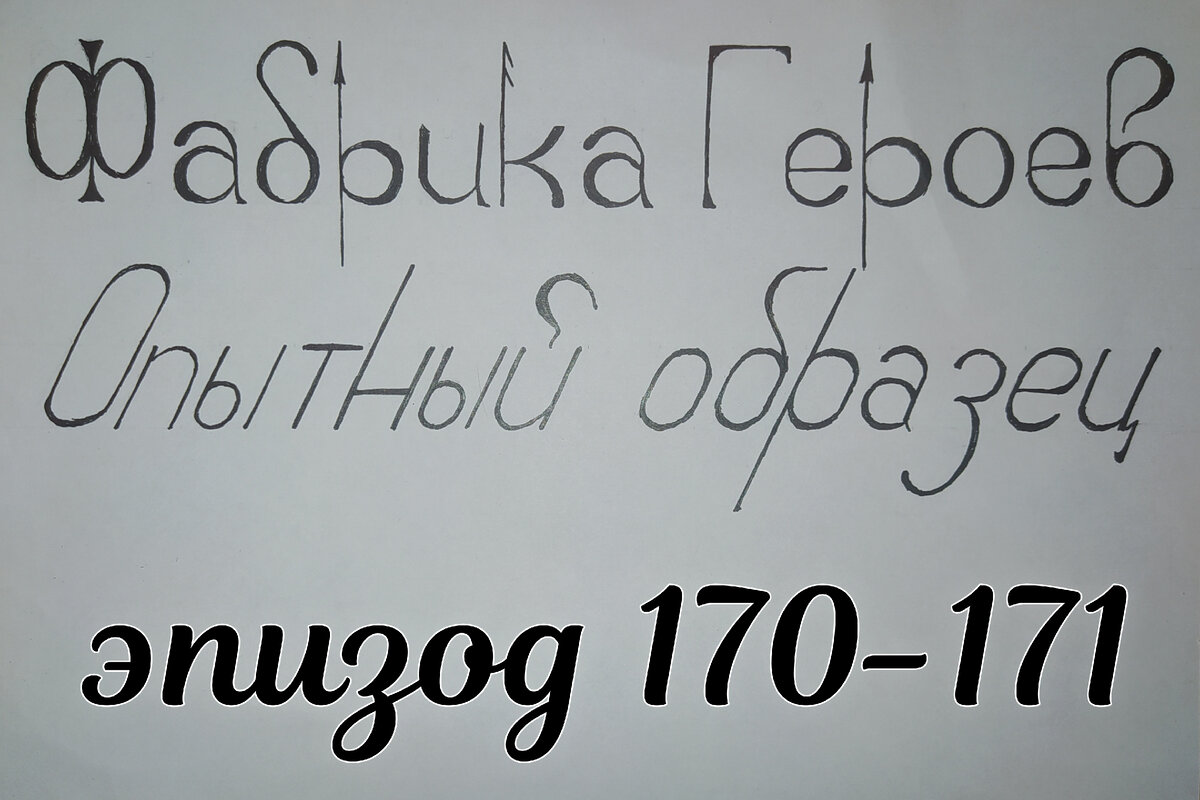 Фабрика Героев
Опытный образец
эпизод 170-171